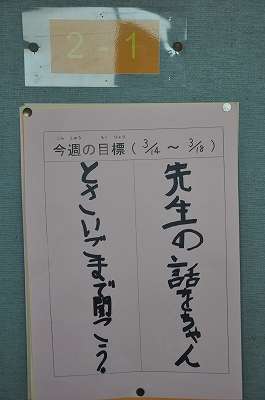 2-1
こん しゅう もく ひょう
今週の目標 ( 3/14 ～ 3/18 )
先生の話をちゃん
とさいごまで聞こう。